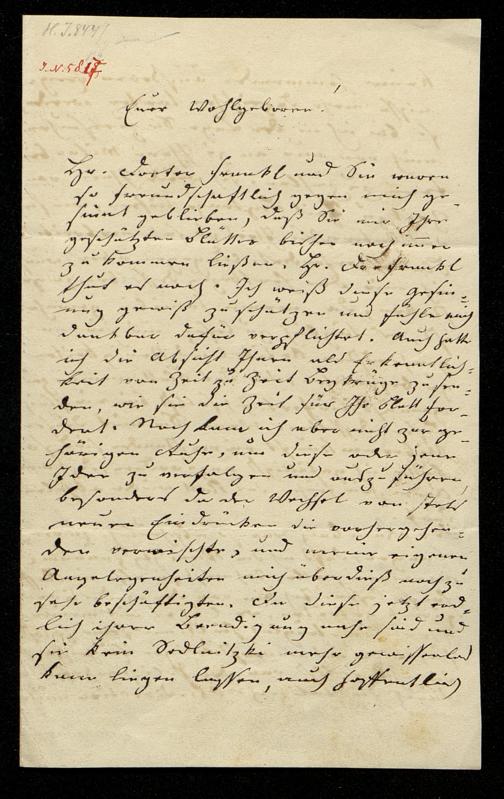 H.I.8447
I.N.5817
Euer Wohlgeboren!
Hr. Doctor Frankl und Sie waren
so freundschaftlich gegen mich ge-
sinnt geblieben, daß Sie mir Ihre
geschätzten Blätter bisher noch immer
zukommen ließen. Hr. Dr Frankl
thut es noch. Ich weiß diese Gesin-
nung gewiß zu schätzen und fühle mich
dankbar dafür verpflichtet. Auch hatte
ich die Absicht Ihnen als Erkenntlich-
keit von Zeit zu Zeit Beyträge zu sen-
den, wie sie die Zeit für Ihr Blatt for-
dert. Noch kam ich aber nicht zur ge-
hörigen Ruhe, um diese oder jene
Idee zu verfolgen und auszuführen,
besonders da der Wechsel von stets
neuen Eindrücken die vorhergehen-
den verwischte, und meine eigenen
Angelegenheiten mich überdieß noch zu
sehr beschäftigten. Da diese jetzt end-
lich ihrer Beendigung nahe sind und
sie kein Sedlnitzki mehr gewissenlos
kann liegen lassen, auch hoffentlich